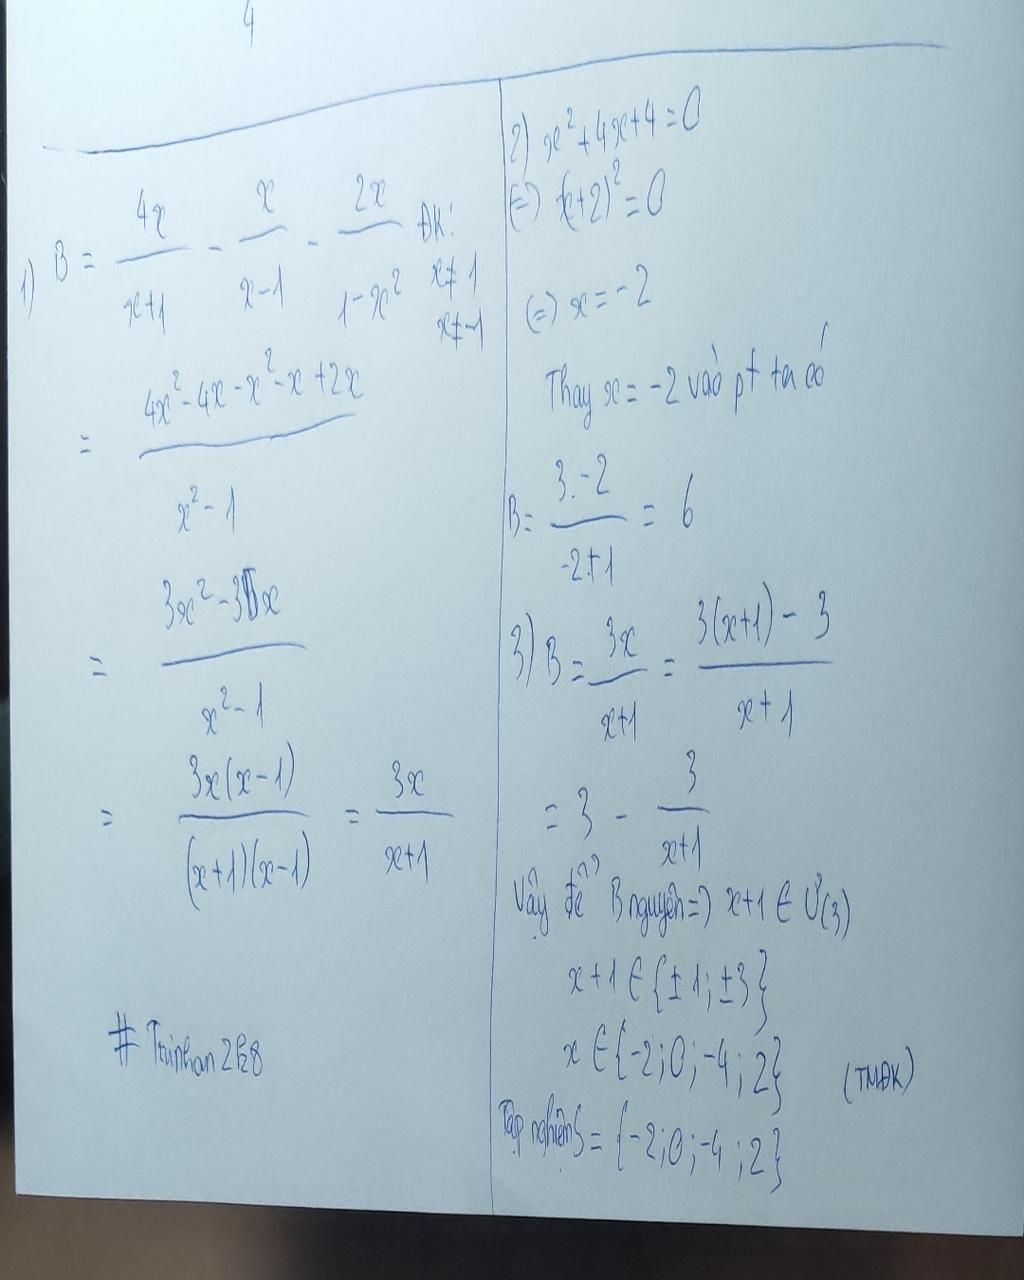 4
1) B = 4x/(x+1) - x/(x-1) - 2x/(1-x²) ĐK: x≠1 x≠-1
= (4x²-4x-x²-x+2x)/(x²-1)
= (3x²-3x)/(x²-1)
= 3x(x-1)/((x+1)(x-1)) = 3x/(x+1)
2) x²+4x+4=0
(=) (x+2)²=0
(=) x=-2
Thay x=-2 vào pt ta có
B= 3.-2/(-2+1) = 6
3) B = 3x/(x+1) = (3(x+1)-3)/(x+1)
= 3 - 3/(x+1)
Vậy để B nguyên=) x+1 ∈ Ư(3)
x+1 ∈ {±1;±3}
x ∈ {-2;0;-4;2} (TMĐK)
Tập nghiệm S = {-2;0;-4;2}